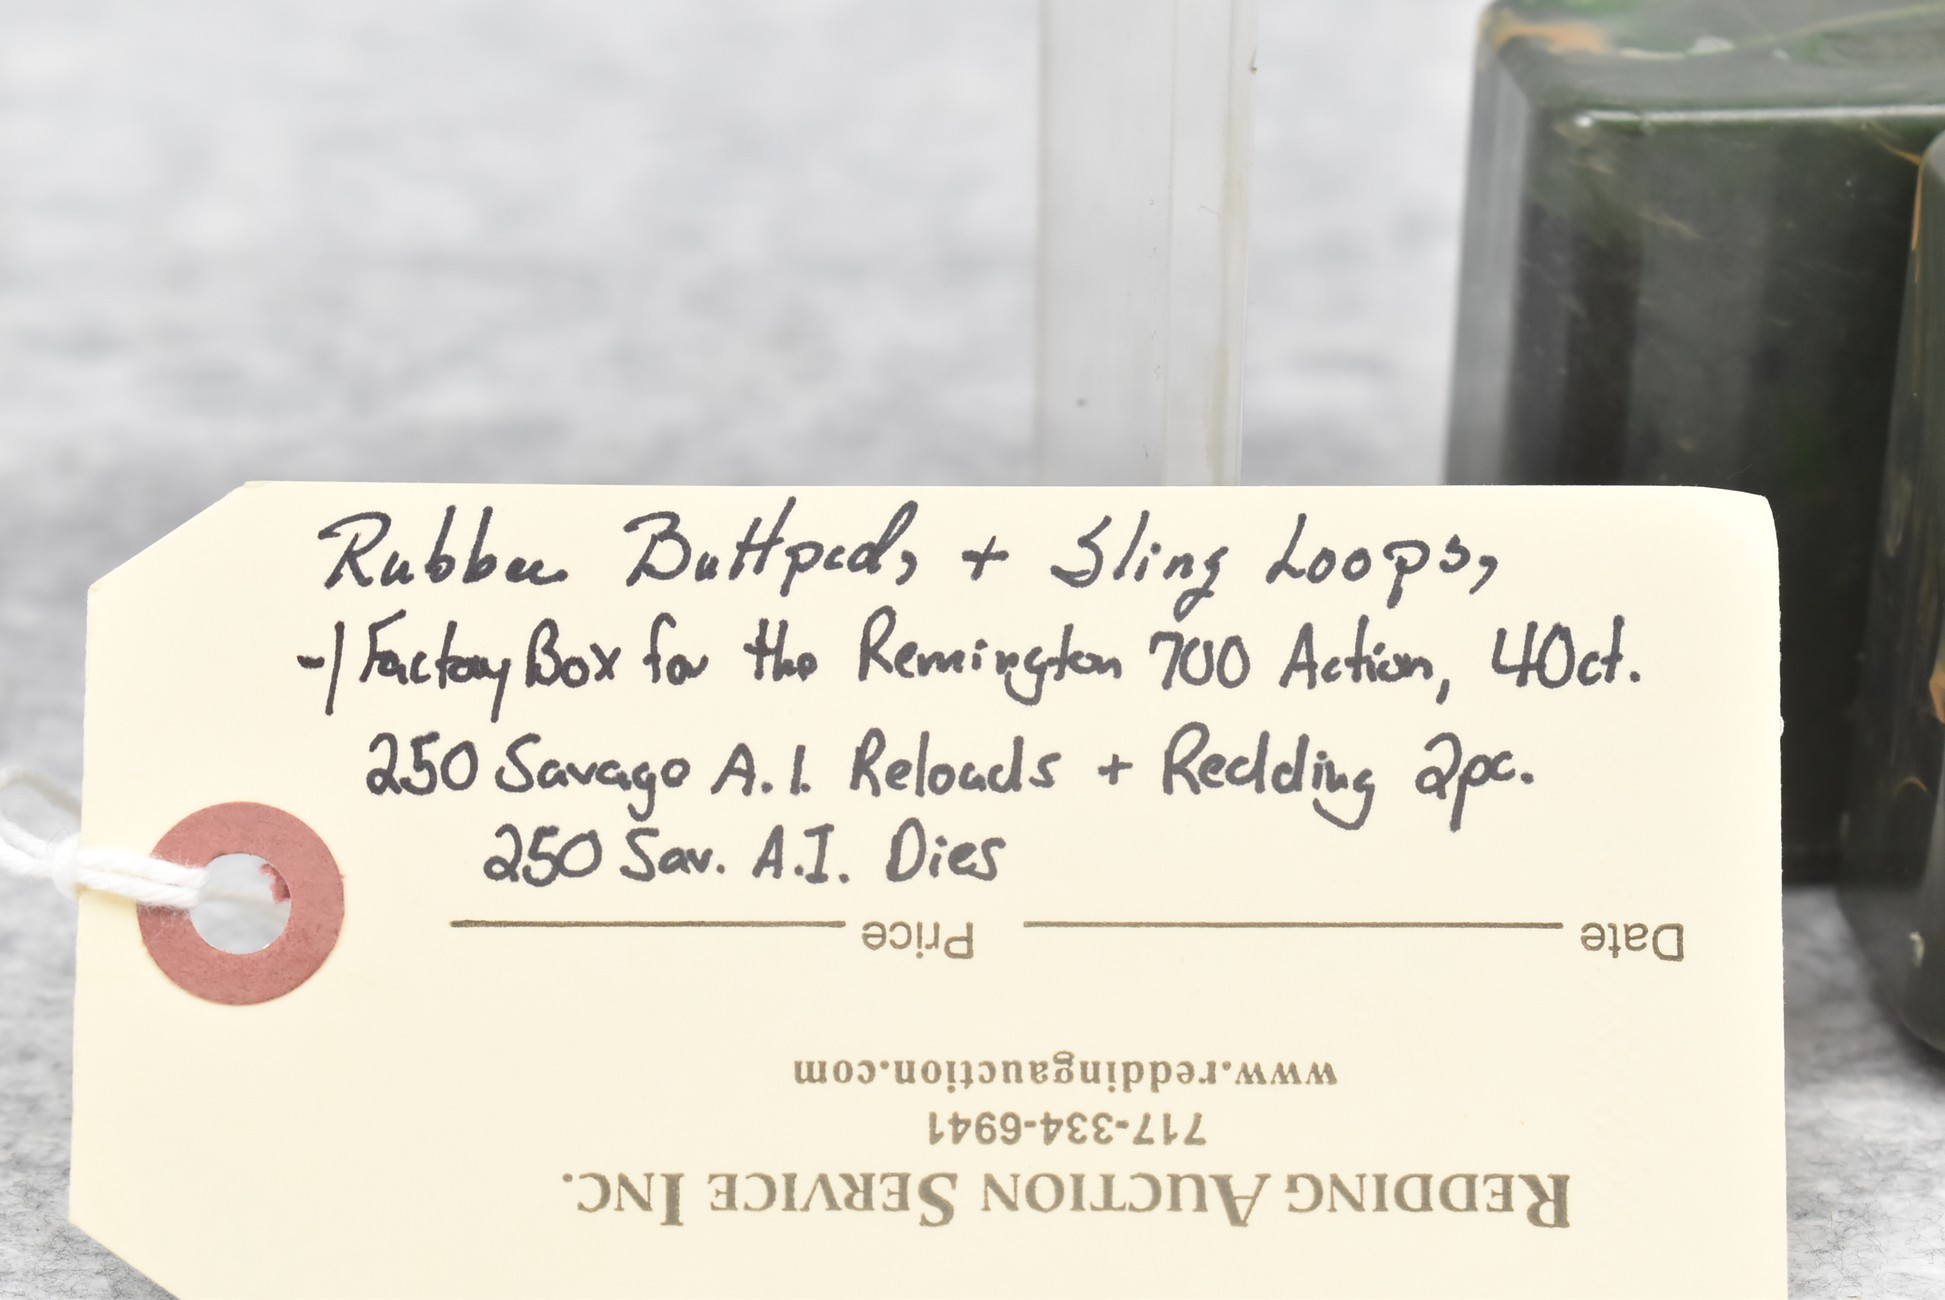 Rubber Buttpad, + Sling Loops,
-/ Factory Box for the Remington 700 Action, 40ct.
250 Savage A.I. Reloads + Redding 2pc.
250 Sav. A.I. Dies
Price Date
www.reddingauction.com
717-334-6941
REDDING AUCTION SERVICE INC.